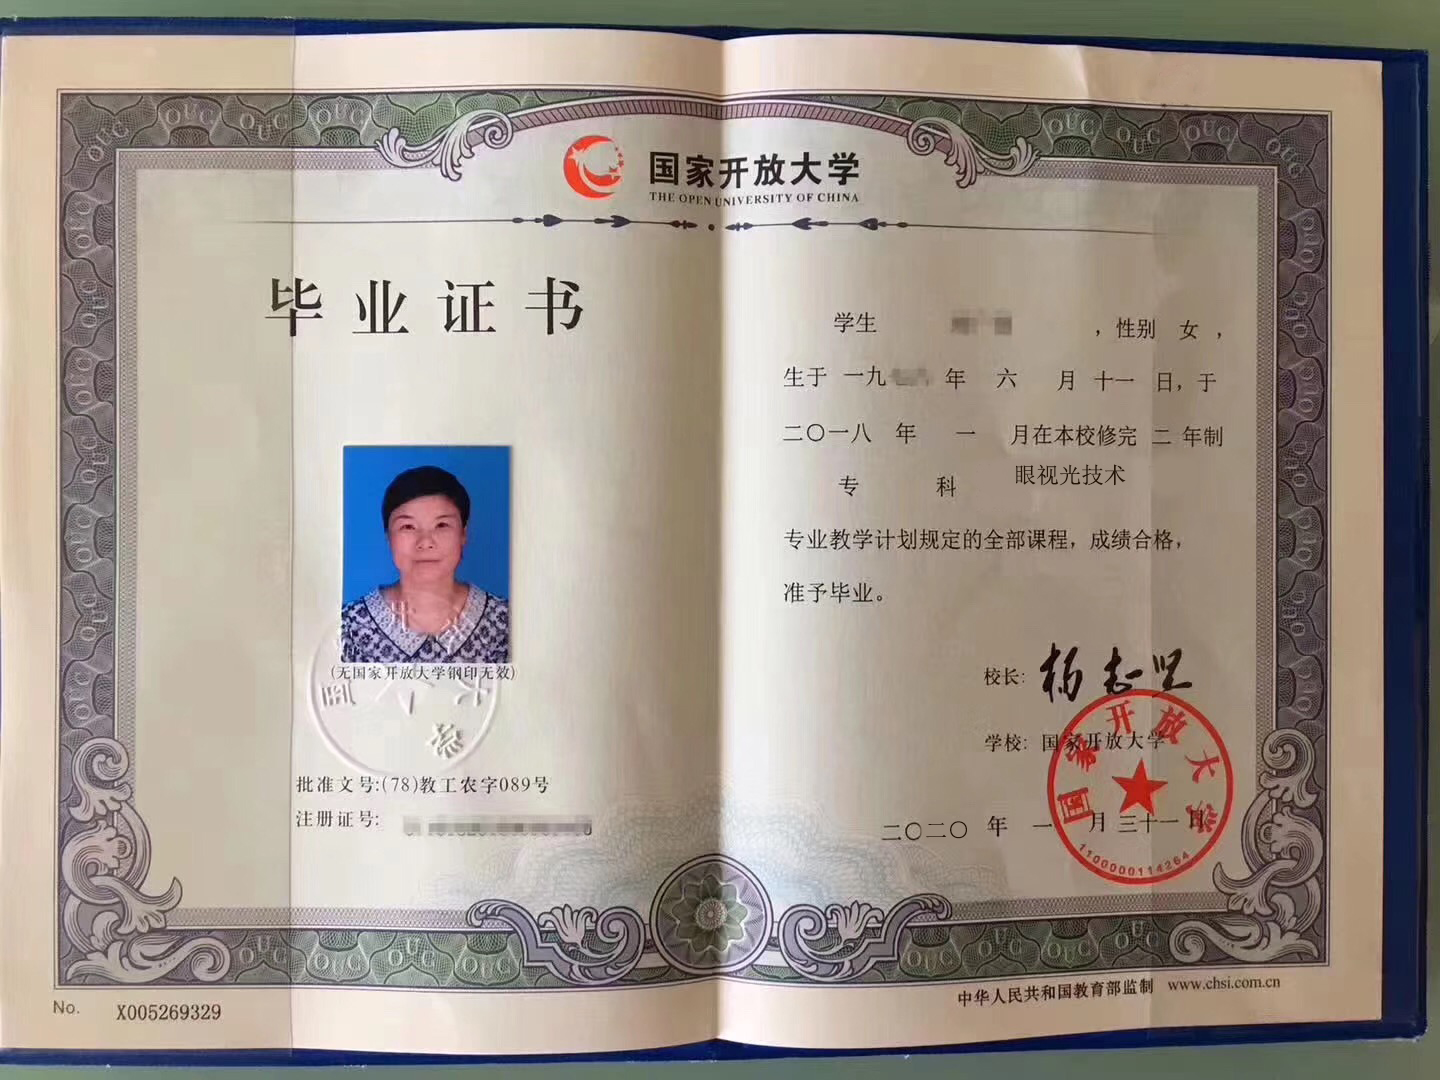 国家开放大学
THE OPEN UNIVERSITY OF CHINA
毕业证书
(无国家开放大学钢印无效)
批准文号:(78)教工农字089号
注册证号:
学生 ,性别 女 ,
生于 一九 年 六 月 十一 日,于
二〇一八 年 一 月在本校修完 二 年制
专 科 眼视光技术
专业教学计划规定的全部课程,成绩合格,
准予毕业。
校长: 杨志坚
学校: 国家开放大学
二〇二〇 年 一 月 三十一 日
国家开放大学
1100000114264
No. X005269329
中华人民共和国教育部监制 www.chsi.com.cn
OUC